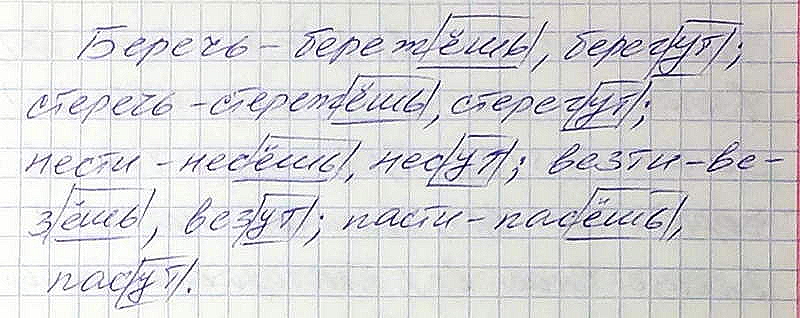 Беречь - бережёшь, берегут;
стеречь - стережёшь, стерегут;
нести - несёшь, несут; везти - ве-
зёшь, везут; пасти - пасёшь,
пасут.